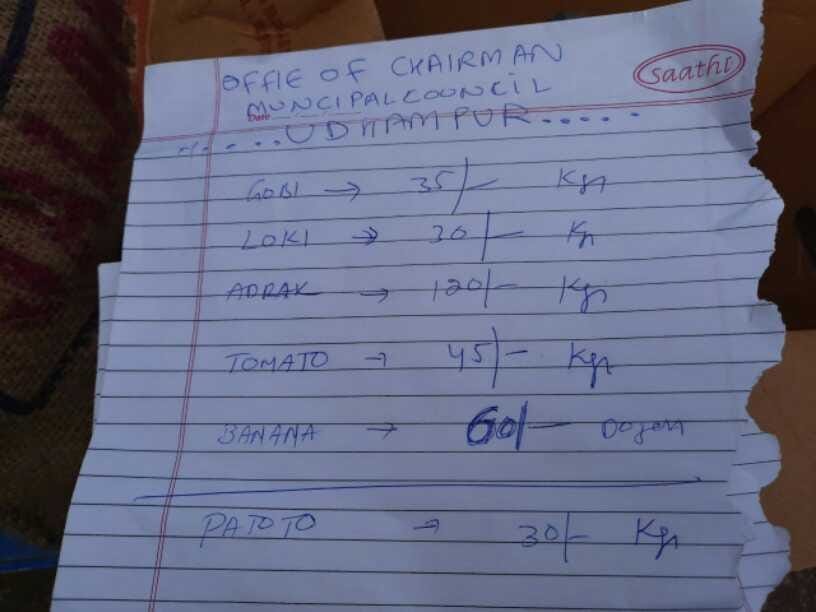 OFFIE OF CHAIRMAN
Saathi
MUNCIPAL COUNCIL
Date
.....UDHAMPUR.....
GOBI → 35/- Kgr
LOKI → 30/- Kr
ADRAK → 120/- Kgr
TOMATO → 45/- Kgr
BANANA → 60/- Dozen
PATOTO → 30/- Kgr